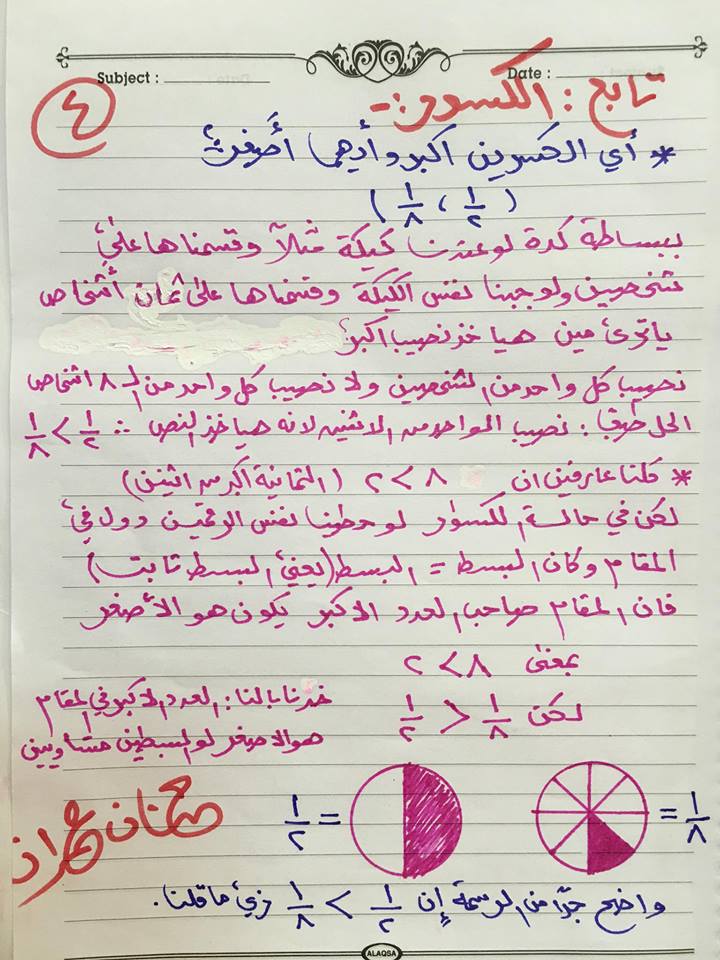 Subject :
Date :
٤
تابع : الكسور :-
* أي الكسرين اكبر وأيهما أصغر :
(١/٢ ، ١/٨)
ببساطة كدة لو عندنا كيكة مثلاً وقسمناها على
شخصين ولو جبنا نفس الكيكة وقسمناها على ثمان أشخاص
ياترى مين هياخذ نصيب اكبر
نصيب كل واحد من الشخصين ولا نصيب كل واحد من الـ ٨ اشخاص
الحل طبعا : نصيب الواحد من الاثنين لانه هياخذ النص ∴ ١/٢ > ١/٨
* كلنا عارفين ان ٨ > ٢ (الثمانية اكبر من اثنين)
لكن في حالة الكسور لو حطينا نفس الرقمين دول في
المقام وكان البسط = البسط (يعني البسط ثابت)
فان المقام صاحب العدد الاكبر يكون هو الأصغر
بمعنى ٨ > ٢
لكن ١/٨ < ١/٢
خدنا بالنا : العدد الاكبر في المقام
هو الاصغر لو البسطين متساويين
١/٨ =
١/٢ =
حنان عمران
واضح جدًا من الرسمة إن ١/٢ > ١/٨ زي ما قلنا.
ALAQSA